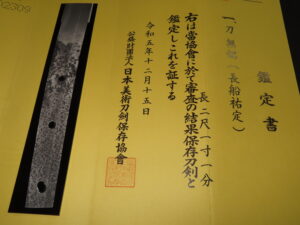 鑑定書
一、刀 無銘（長船祐定）
長二尺一寸一分
右は當協會に於て審査の結果保存刀剣と
鑑定しこれを証する
令和五年十二月十五日
公益財団法人日本美術刀剣保存協會